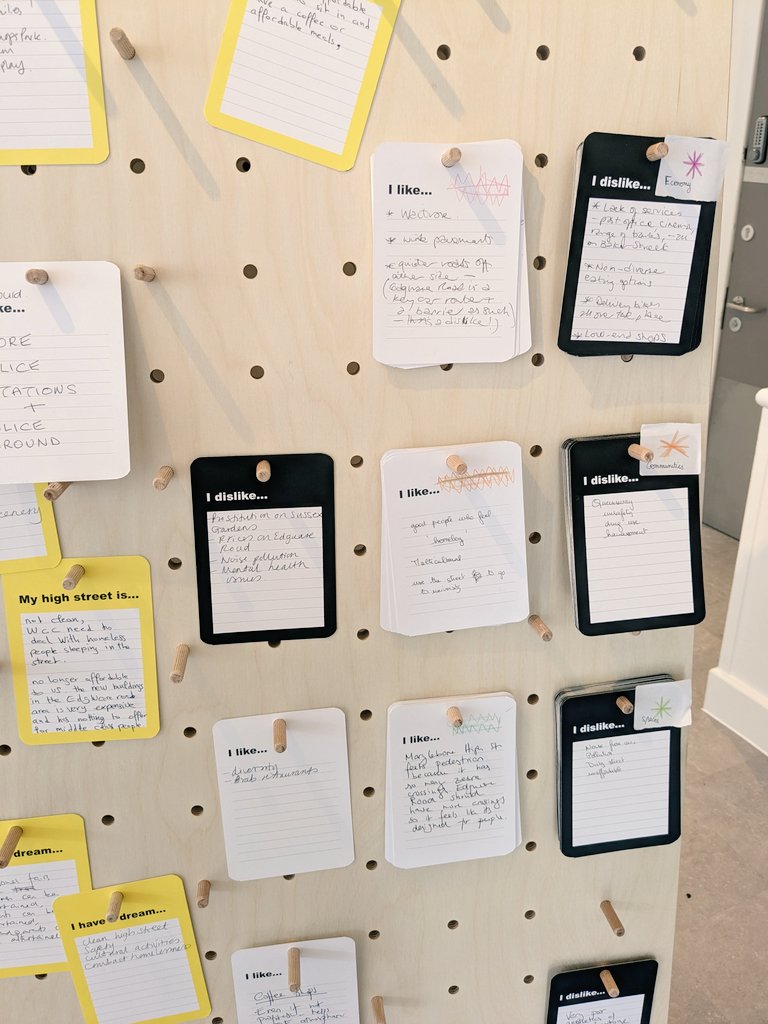 sit in and
have a coffee or
affordable meals,
play.
I like...
* Waitrose
* wide pavements
* quieter roads off
other side –
(Edgware Road is a
key car route +
a barrier as such
– this a dislike!)
I dislike...
Economy
* Lack of services
– post office, cinema,
range of banks, – all
on Baker Street
* Non-diverse
eating options
* Delivery bikes
all over the place
* Low-end shops
ould
ke...
ORE
LICE
TATIONS
+
LICE
ROUND
cenery
I dislike...
Prostitution on Sussex
Gardens
- Prices on Edguare
Road
- Noise pollution
- Mental health
issues
I like...
good people who feel
homeley
Multicultural
use the street to go
to university
I dislike...
Communities
unsafety
drug use
harassment
My high street is...
not clean,
WCC need to
deal with homeless
people sleeping in the
street.
no longer affordable
to us. the new buildings
in the Edgware road
area is very expensive
and has nothing to offer
for middle class people
I like...
- diversity
- Arab restaurants
I like...
Marylebone High St
feels pedestrian
because it has
so many zebra
crossings. Edgware
Road should
have more crossings
so it feels like its
designed for people.
I dislike...
Spaces
Noise from cars
Pollution
Busy street
dream...
can be
I have a dream...
clean high street
Safety
cultural activities
combact homelessness
I like...
Coffee shops
Even if not
I dislike...
Very poor